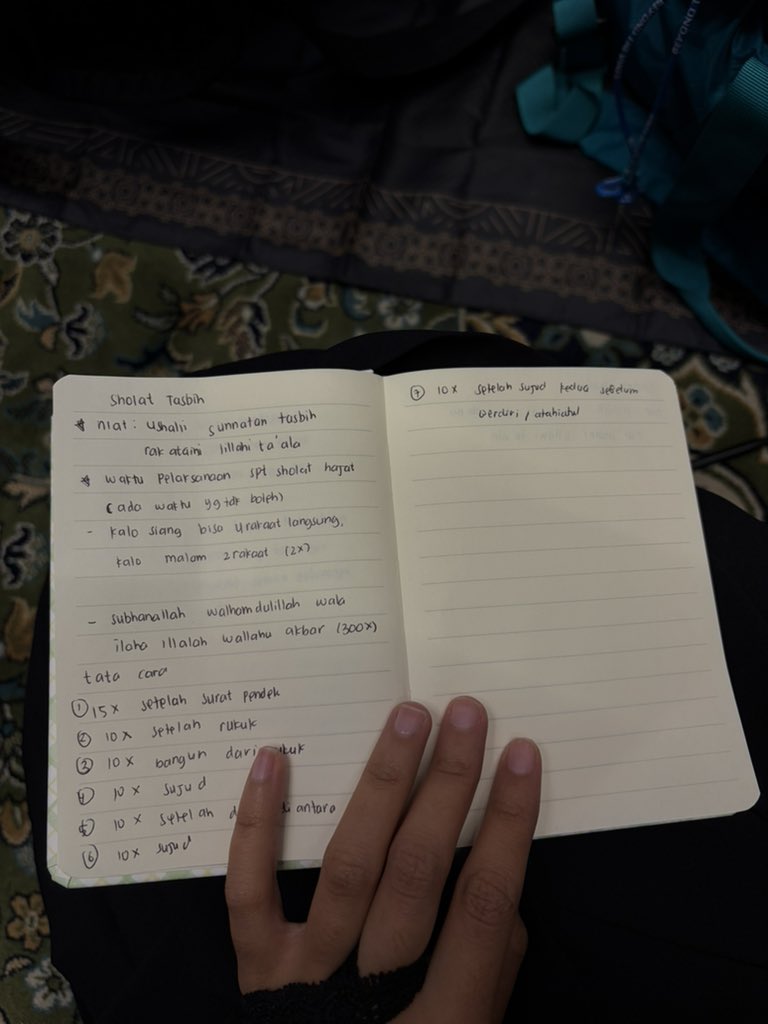 Sholat Tasbih
* niat : ushalli sunnatan tasbih
rak ataini lillahi ta'ala
* waktu pelaksanaan spt sholat hajat
(ada waktu yg tdk boleh)
- kalo siang bisa 4 rakaat langsung,
kalo malam 2 rakaat (2x)
- subhanallah walhamdulillah wala
ilaha illalah wallahu akbar (300x)
tata cara
① 15x setelah surat pendek
② 10x setelah rukuk
③ 10x bangun dari rukuk
④ 10x sujud
⑤ 10x setelah di antara
⑥ 10x sujud
⑦ 10x setelah sujud kedua sebelum
berdiri / atahiatul
BEYOND